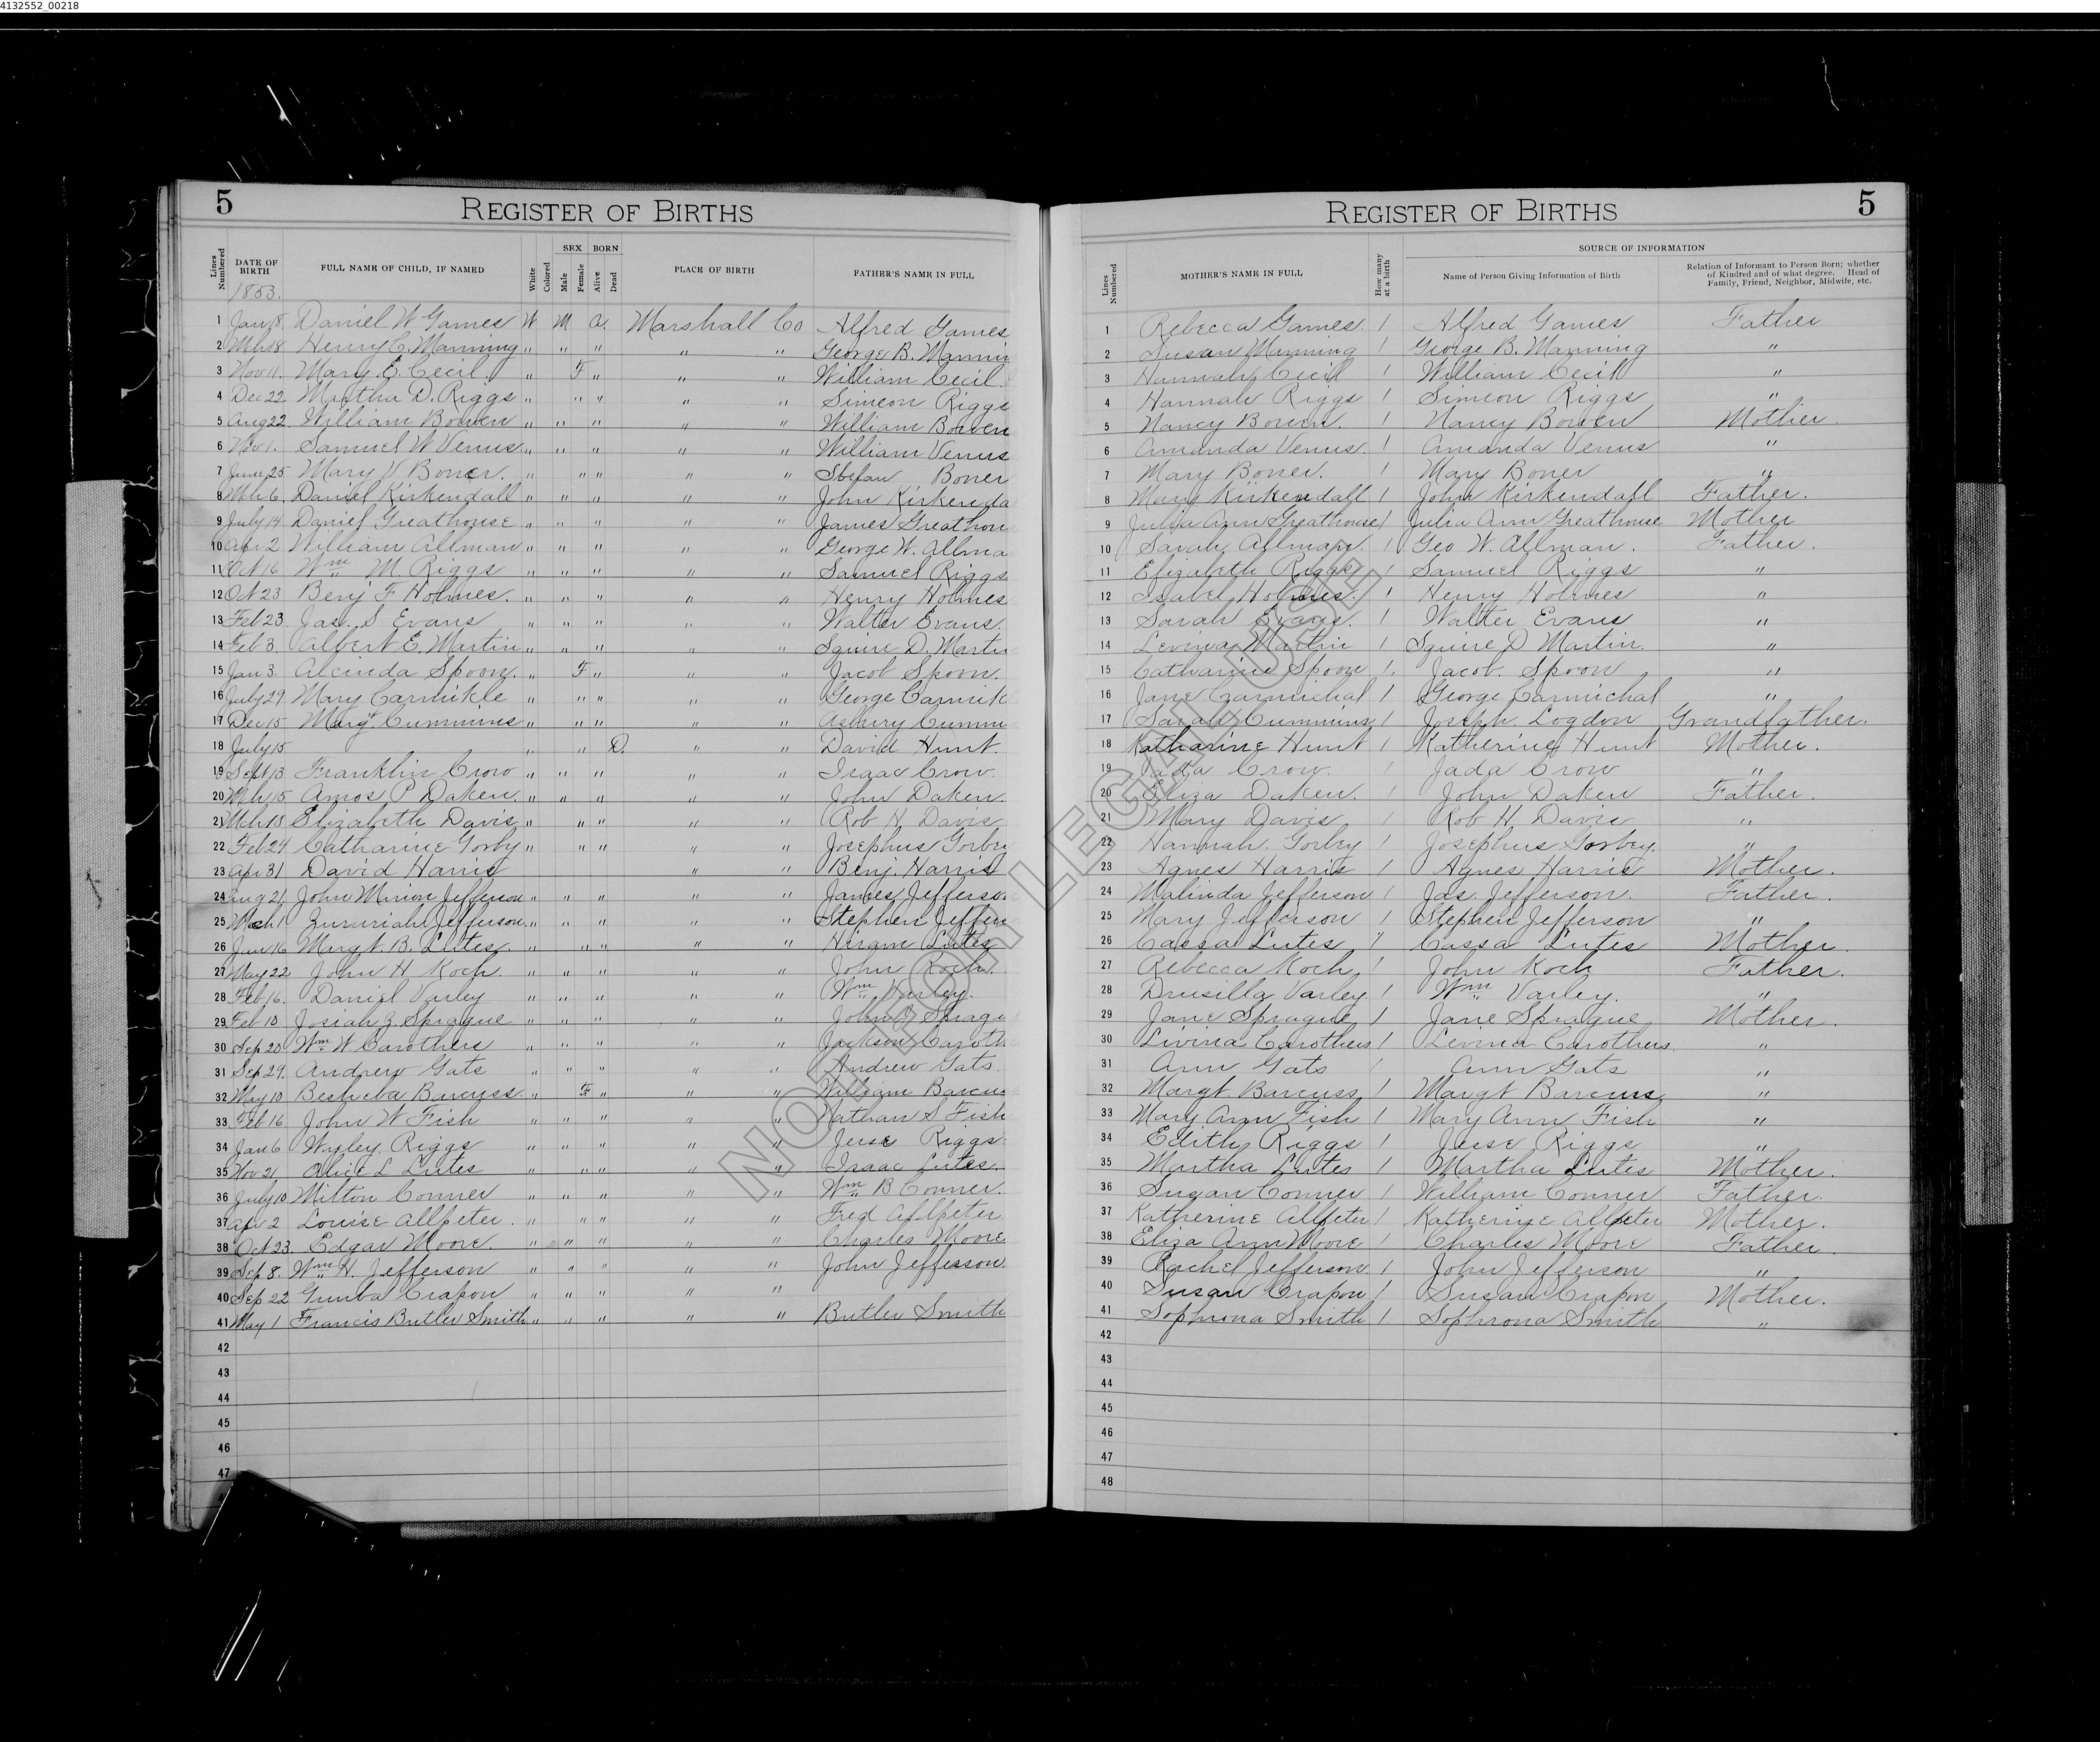 4132552_00218
5 REGISTER OF BIRTHS
Lines Numbered DATE OF BIRTH FULL NAME OF CHILD, IF NAMED White Colored SEX Male Female BORN Alive Dead PLACE OF BIRTH FATHER'S NAME IN FULL
1853.
1 Jan 8. Daniel W Games W M a. Marshall Co Alfred Games
2 Mh 18 Henry C. Manning " " " " " George B. Mannin
3 Nov 11. Mary E. Cecil. " F " " " William Cecil.
4 Dec 22 Martha D. Riggs " " " " " Simeon Riggs
5 Aug 22 William Bowen " " " " " William Bowen
6 Nov 1. Samuel W Venus " " " " " William Venus
7 June 25 Mary V Boner. " " " " " Stefan Boner
8 Mh 6. Daniel Kirkendall " " " " " John Kirkenda
9 July 14 Daniel Greathouse " " " " " James Greathou
10 Apr 2 William Allman " " " " " George W. Allma
11 Oct 16 Wm M Riggs " " " " " Samuel Riggs
12 Oct 23 Benj F Holmes. " " " " " Henry Holmes
13 Feb 23. Jas. S Evans " " " " " Walter Evans.
14 Feb 3. Albert E. Martin " " " " " Squire D. Martin
15 Jan 3. Alcinda Spoon. " F " " " Jacob Spoon.
16 July 29 Mary Carmikle " " " " " George Carmick
17 Dec 15 Margt. Cummins " " " " " Asbury Cummi
18 July 15 " " D. " " David Hunt.
19 Sept 13 Franklin Crow " " " " " Isaac Crow.
20 Mh 15 Amos P Daken. " " " " " John Daken.
21 Mch 13 Elizabeth Davis " " " " " Rob H Davis
22 Feb 24 Catharine Gorby " " " " " Josephus Gorby
23 Apr 31 David Harris " " Benj. Harris
24 Aug 21 John Minion Jefferson " " " " " James Jefferso
25 Mch 11 Jefferson. " " " " Stephen Jeffers
26 Jan 16 Margt. B. Lutes. " " " " " Hiram Lutes
27 May 22 John H Koch. " " " " " John Koch.
28 Feb 16. Daniel Varley " " " " " Wm Varley.
29 Feb 10 Josiah Z. Sprague " " " " " John Spragu
30 Sep 20 Wm W Carothers " " " " " Jackson Caroth
31 Sep 29. Andrew Gats " " " " " Andrew Gats.
32 May 10 Besheba Barcuss. " F " " " William Barcus
33 Feb 16 John W Fish " " " " " Nathan S Fish
34 Jan 6 Wyley Riggs " " " " " Jesse Riggs
35 Nov 21 Alice L Lutes " " " " " Isaac Lutes.
36 July 10 Milton Conner " " " " " Wm B Conner.
37 Apr 2 Louise Allpeter. " " " " " Fred Allpeter
38 Oct 23. Edgar Moore. " " " " " Charles Moore
39 Sep 8. Wm H. Jefferson " " " " " John Jefferson
40 Sep 22 Crapon " " " " "
41 May 1 Francis Butler Smith " " " " " Butler Smith
42
43
44
45
46
47
REGISTER OF BIRTHS 5
Lines Numbered MOTHER'S NAME IN FULL How many at a birth SOURCE OF INFORMATION
Name of Person Giving Information of Birth
Relation of Informant to Person Born; whether of Kindred and of what degree. Head of Family, Friend, Neighbor, Midwife, etc.
1 Rebecca Games. 1 Alfred Games Father
2 Susan Manning 1 George B. Manning "
3 Hannah Cecil 1 William Cecil "
4 Hannah Riggs 1 Simeon Riggs "
5 Nancy Bowen. 1 Nancy Bowen Mother.
6 Amanda Venus. 1 Amanda Venus "
7 Mary Boner. 1 Mary Boner "
8 Mary Kirkendall 1 John Kirkendall Father.
9 Julia Ann Greathouse 1 Julia Ann Greathouse Mother
10 Sarah Allman. 1 Geo W. Allman. Father.
11 Elizabeth Riggs 1 Samuel Riggs "
12 Isabel Holmes. 1 Henry Holmes "
13 Sarah Evans. 1 Walter Evans "
14 Levina Martin 1 Squire D Martin. "
15 Catharine Spoon 1. Jacob. Spoon "
16 Jane Carmichal 1 George Carmichal "
17 Sarah Cummins 1 Joseph. Logdon Grandfather.
18 Katharine Hunt 1 Katherine Hunt Mother.
19 Jada Crow. 1 Jada Crow "
20 Eliza Daken. 1 John Daken Father.
21 Mary Davis 1 Rob H. Davis "
22 Hannah. Gorby 1 Josephus Gorbey. "
23 Agnes Harris 1 Agnes Harris Mother.
24 Malinda Jefferson 1 Jas. Jefferson. Father.
25 Mary Jefferson 1 Stephen Jefferson "
26 Cassa Lutes " Cassa Lutes Mother.
27 Rebecca Koch 1 John Koch Father.
28 Drusilla Varley 1 Wm Varley. "
29 Jane Sprague 1 Jane Sprague Mother.
30 Livina Carothers 1 Levina Carothers. "
31 Ann Gats 1 Ann Gats "
32 Margt Barcuss 1 Margt Barcuss "
33 Mary Ann Fish 1 Mary Ann Fish "
34 Edith Riggs 1 Jesse Riggs "
35 Martha Lutes 1 Martha Lutes Mother.
36 Susan Conner 1 William Conner Father.
37 Katherine Allpeter 1 Katherine Allpeter Mother.
38 Eliza Ann Moore 1 Charles Moore Father.
39 Rachel Jefferson. 1 John Jefferson "
40 Susan Crapon 1 Susan Crapon Mother.
41 Sophrona Smith 1 Sophrona Smith "
42
43
44
45
46
47
48
NOT FOR LEGAL USE